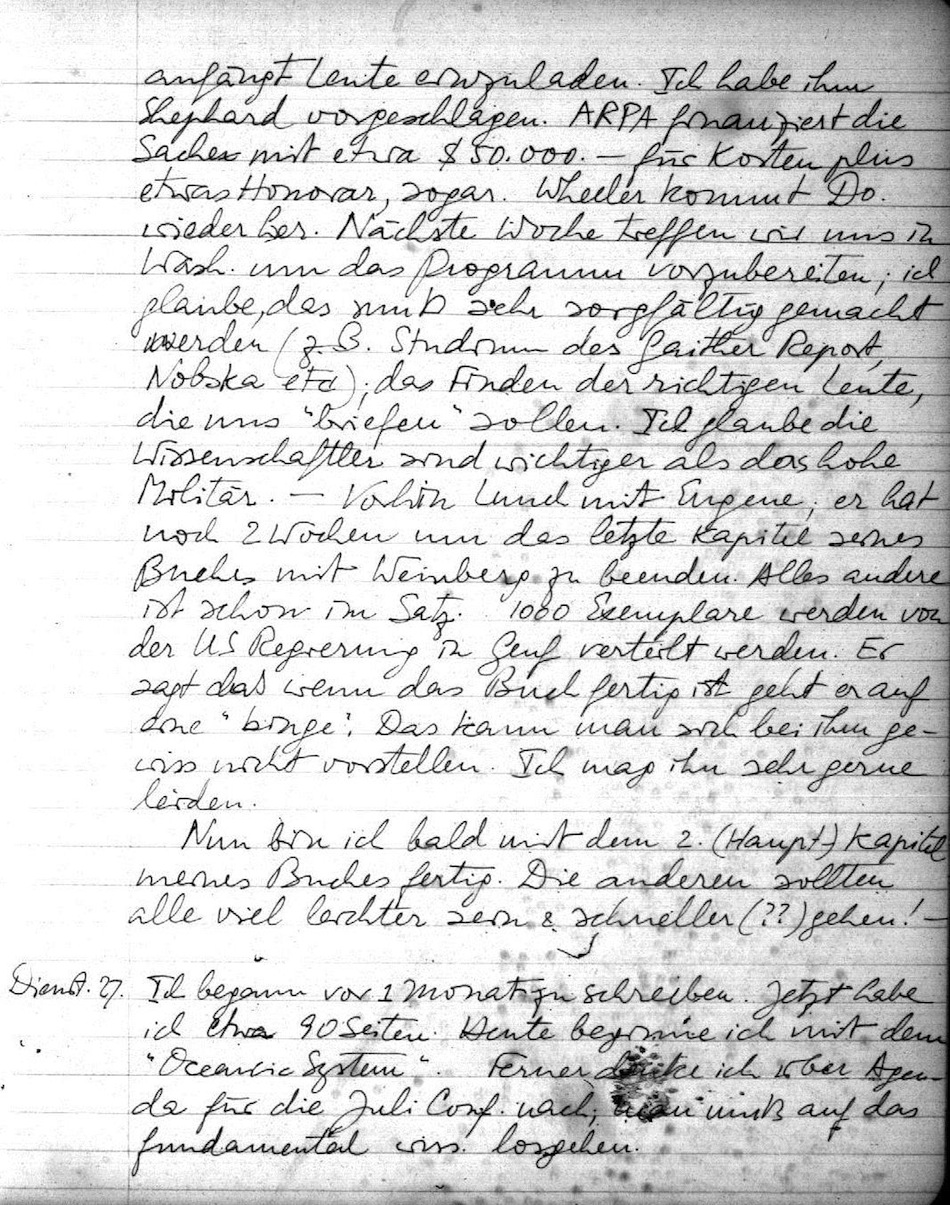 anfängt Leute einzuladen. Ich habe ihm
Shephard vorgeschlagen. ARPA finanziert die
Sache mit etwa $50.000.– für Kosten plus
etwas Honorar, sogar. Wheeler kommt Do.
wieder her. Nächste Woche treffen wir uns in
Wash. um das Programm vorzubereiten; ich
glaube, das muß sehr sorgfältig gemacht
werden (z.B. Studium des Gaither Report,
Nobska etc); das Finden der richtigen Leute,
die uns "briefen" sollen. Ich glaube die
Wissenschaftler sind wichtiger als das hohe
Militär. – Vorhin Lunch mit Eugene; er hat
noch 2 Wochen um das letzte Kapitel seines
Buches mit Weinberg zu beenden. Alles andere
ist schon im Satz. 1000 Exemplare werden von
der US Regierung in Genf verteilt werden. Er
sagt daß wenn das Buch fertig ist geht er auf
eine "binge". Das kann man sich bei ihm ge-
wiss nicht vorstellen. Ich mag ihn sehr gerne
leiden.
Nun bin ich bald mit dem 2. (Haupt-) Kapitel
meines Buches fertig. Die anderen sollten
alle viel leichter sein & schneller (??) gehen! –
Dienst. 27. Ich begann vor 1 Monat zu schreiben. Jetzt habe
ich etwa 90 Seiten. Heute beginne ich mit dem
"Oceanic System". Ferner denke ich über Agen-
da für die Juli Conf. nach; man muß auf das
fundamental wiss. losgehen.